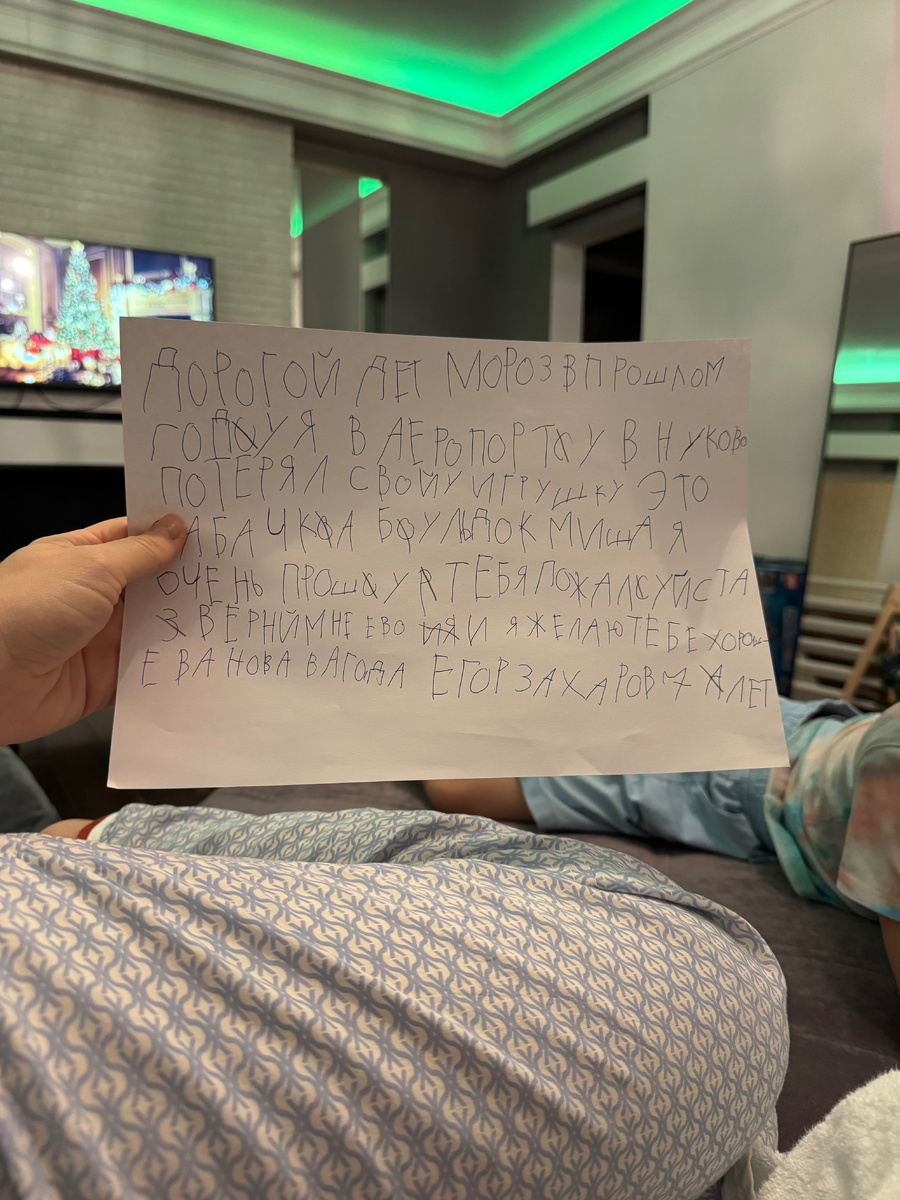 ДОРОГОЙ ДЕТ МОРОЗ В ПРОШЛОМ
ГОДУ Я В АЕРОПОРТУ ВНУКОВО
ПОТЕРЯЛ СВОЙУ ИГРУШКУ ЭТО
АБАЧКА БУЛЬДОК МИША Я
ОЧЕНЬ ПРОШУ ТЕБЯ ПОЖАЛУЙСТА
ВЕРНЙ МНЕ ЕВО И Я ЖЕЛАЮ ТЕБЕ ХОРОШ
ЕВА НОВА ВАГОДА ЕГОР ЗАХАРОВ 7 ЛЕТ